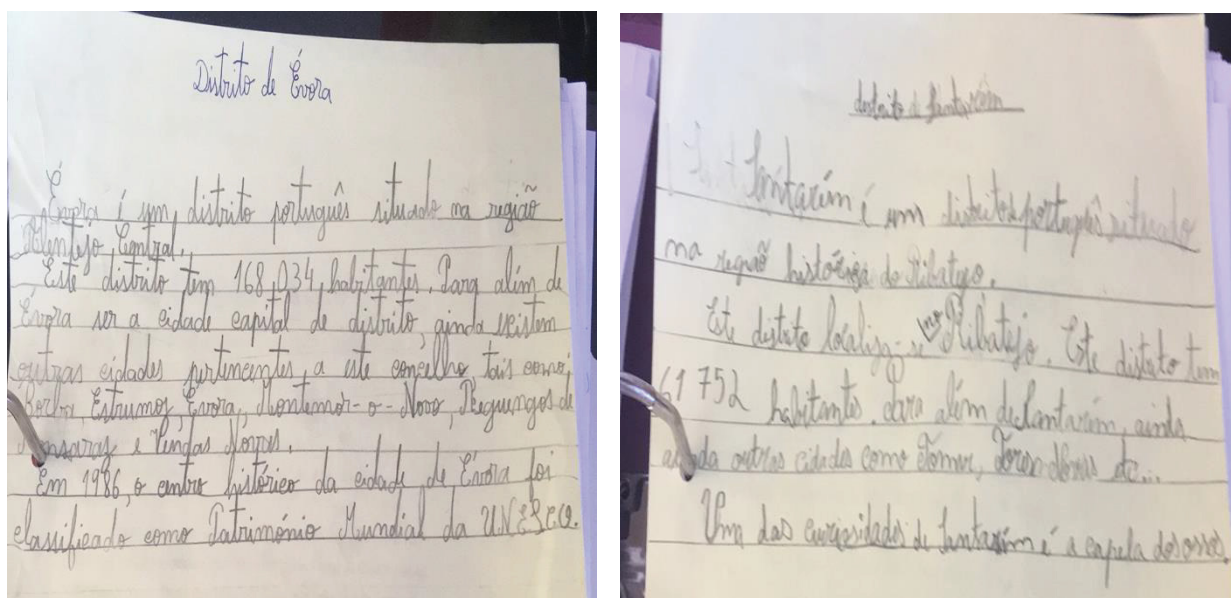 Distrito de Évora
Évora é um distrito português situado na região
Alentejo Central.
Este distrito tem 168 034 habitantes. Para além de
Évora ser a cidade capital de distrito, ainda existem
outras cidades pertencentes a este concelho tais como:
Borba, Estremoz, Évora, Montemor-o-Novo, Reguengos de
Monsaraz e Vendas Novas.
Em 1986, o centro histórico da cidade de Évora foi
classificado como Património Mundial da UNESCO.
distrito de Santarém
Santarém é um distrito português situado
na região histórica do Ribatejo.
Este distrito localiza-se no Ribatejo. Este distrito tem
61 752 habitantes. Para além de Santarém, ainda
outras cidades como Tomar, Torres etc...
Um das curiosidades de Santarém é a capela dos ossos.